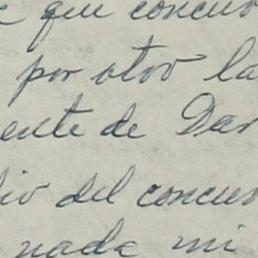 que concur
por otro la
ente de Dar
io del concur
nada mi